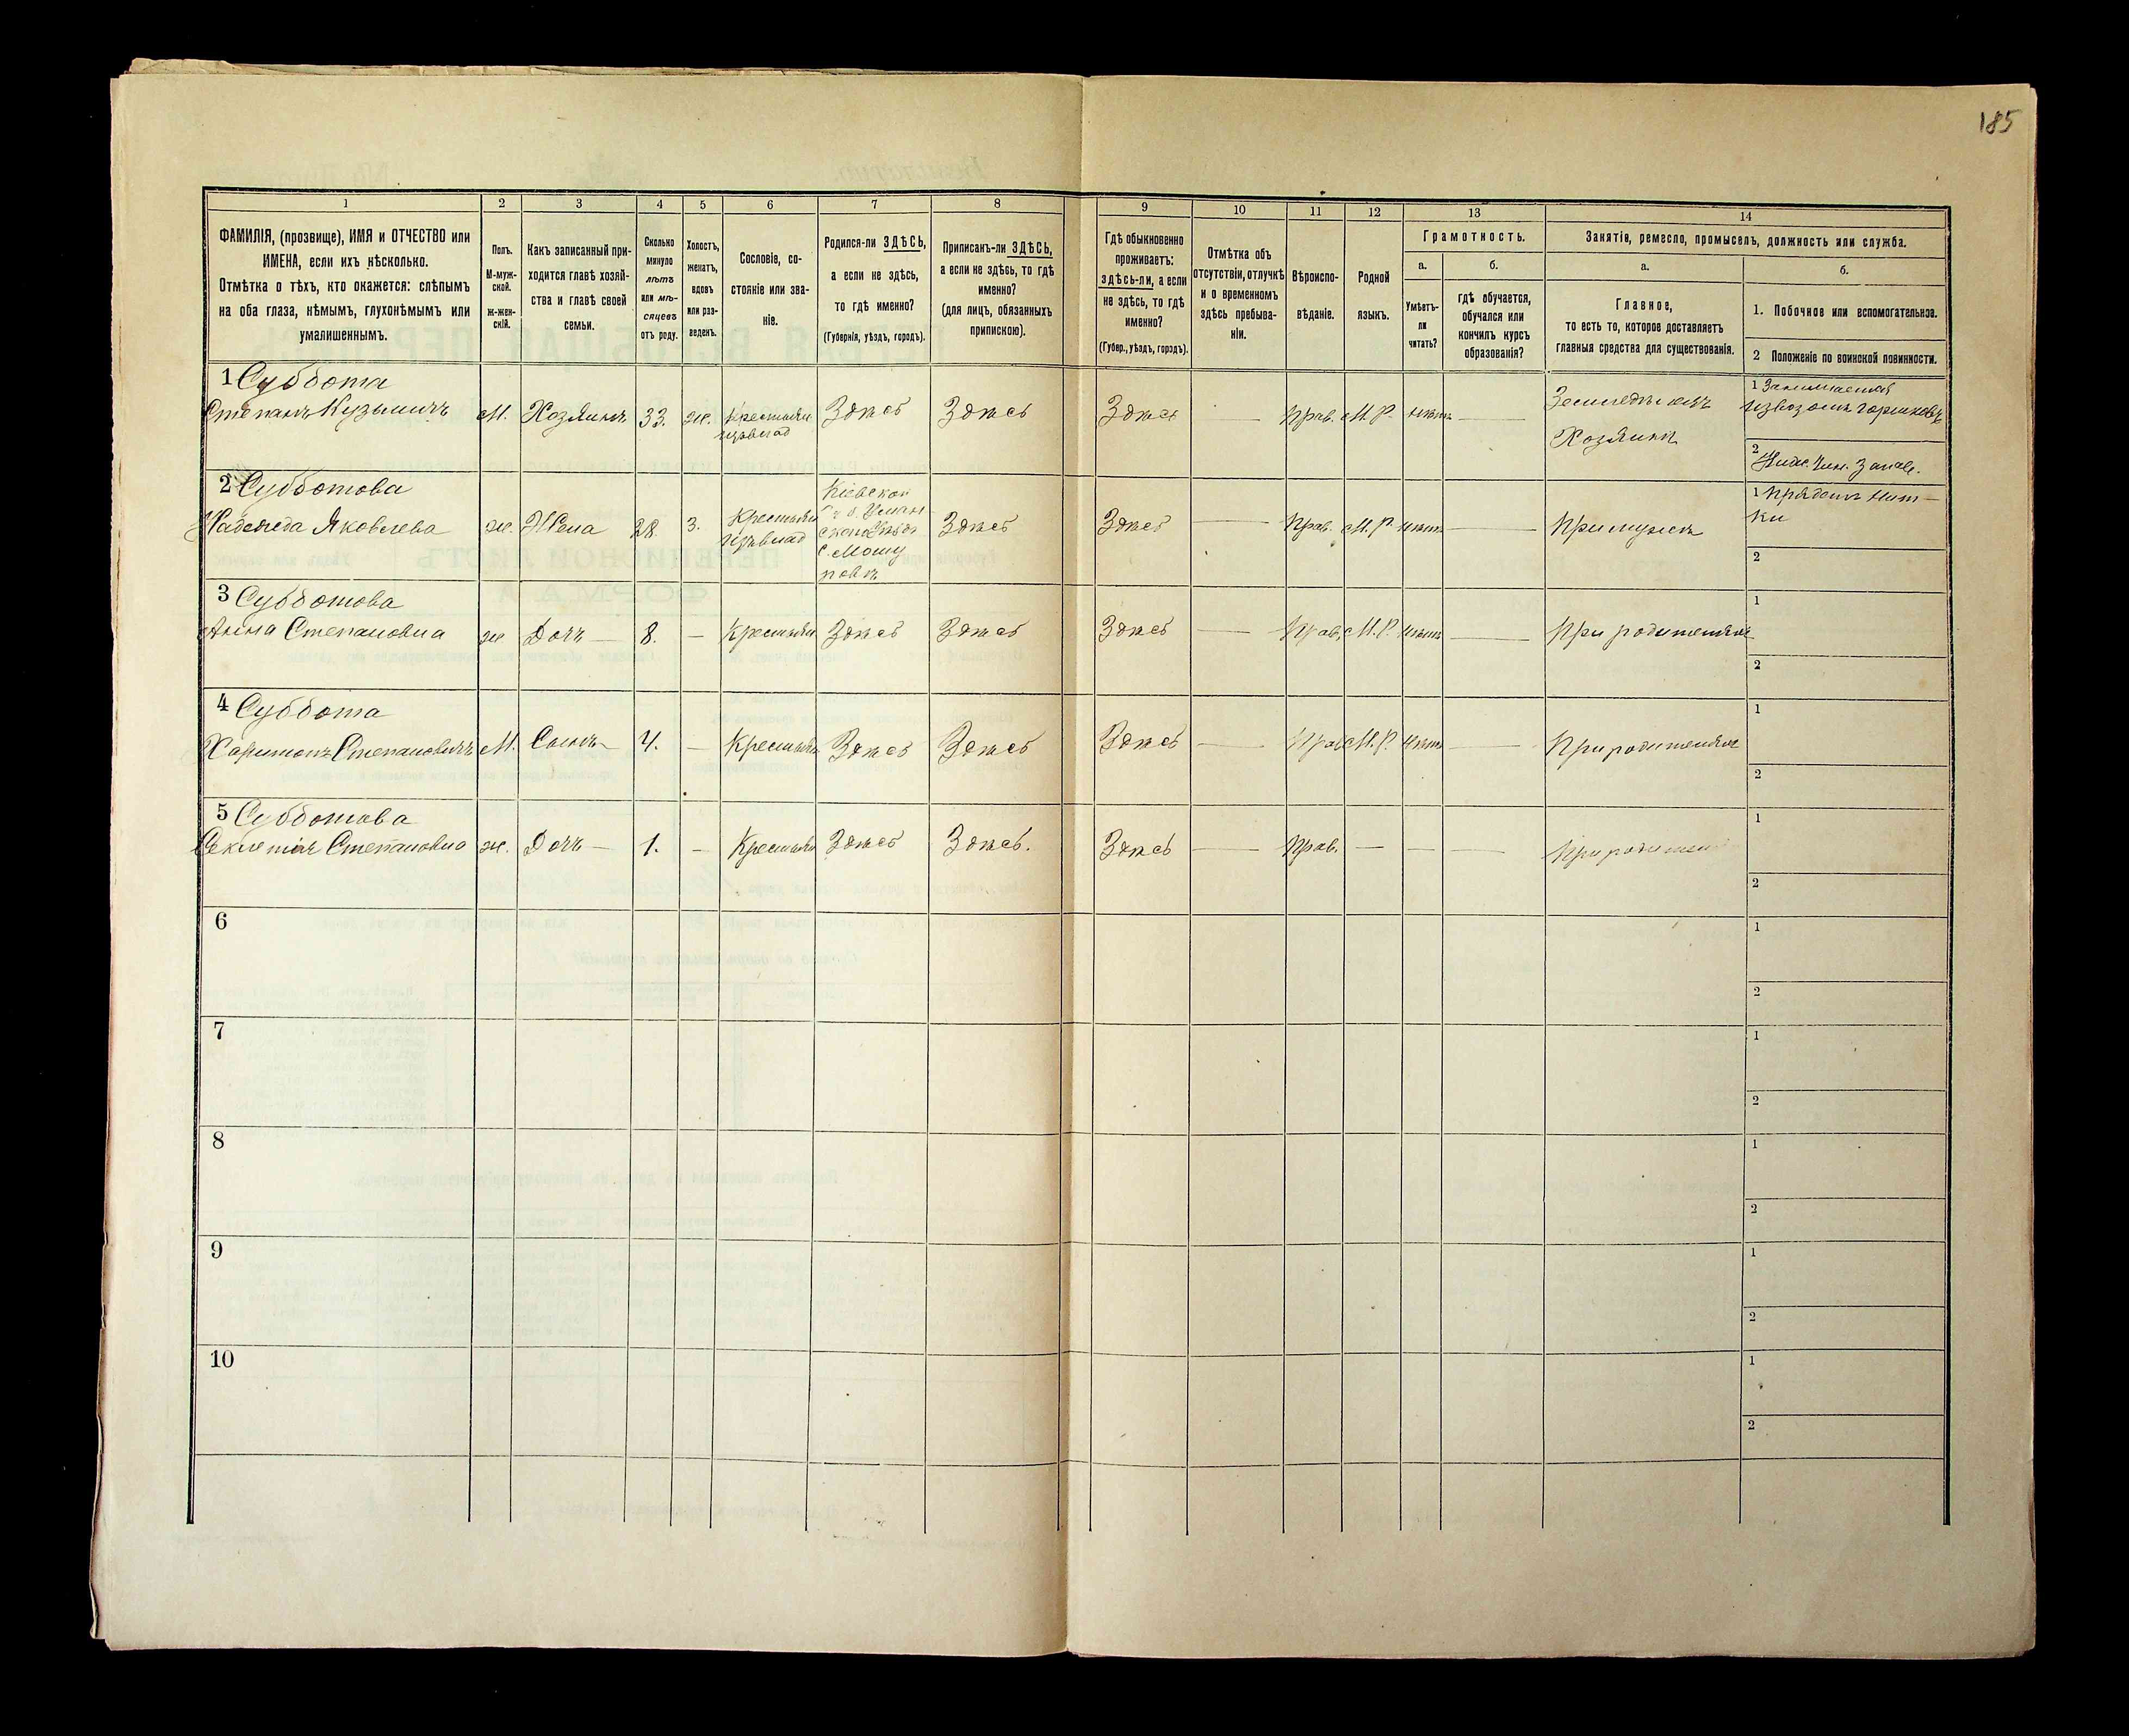 185
1
2
3
4
5
6
7
8
9
10
11
12
13
14
ФАМИЛІЯ, (прозвище), ИМЯ и ОТЧЕСТВО или
ИМЕНА, если ихъ нѣсколько.
Отмѣтка о тѣхъ, кто окажется: слѣпымъ
на оба глаза, нѣмымъ, глухонѣмымъ или
умалишеннымъ.
Полъ.
М-муж-
ской.
Ж-жен-
скій.
Какъ записанный при-
ходится главѣ хозяй-
ства и главѣ своей
семьи.
Сколько
минуло
лѣтъ
или мѣ-
сяцевъ
отъ роду.
Холостъ,
женатъ,
вдовъ
или раз-
веденъ.
Сословіе, со-
стояніе или зва-
ніе.
Родился-ли ЗДѢСЬ,
а если не здѣсь,
то гдѣ именно?
(Губернія, уѣздъ, городъ).
Приписанъ-ли ЗДѢСЬ,
а если не здѣсь, то гдѣ
именно?
(для лицъ, обязанныхъ
припискою).
Гдѣ обыкновенно
проживаетъ:
здѣсь-ли, а если
не здѣсь, то гдѣ
именно?
(Губер., уѣздъ, городъ).
Отмѣтка объ
отсутствіи, отлучкѣ
и о временномъ
здѣсь пребыва-
ніи.
Вѣроиспо-
вѣданіе.
Родной
языкъ.
Грамотность.
а.
Умѣетъ-
ли
читать?
б.
гдѣ обучается,
обучался или
кончилъ курсъ
образованія?
Занятіе, ремесло, промыселъ, должность или служба.
а.
Главное,
то есть то, которое доставляетъ
главныя средства для существованія.
б.
1. Побочное или вспомогательное.
2 Положеніе по воинской повинности.
1 Суббота
Степанъ Кузьмичъ
М.
Хозяинъ
33.
ж.
Крестьян
изъ влад
Здѣсь
Здѣсь
Здѣсь
—
Прав.
М.Р.
нѣтъ
—
Земледѣлецъ
Хозяинъ
1 Занимается
извозомъ горшковъ
2 Ниж. Чин. Запас.
2 Субботова
Надежда Яковлева
ж.
Жена
28.
З.
Крестьян
изъ влад
Кіевской
Губ. Уман
скаго Уѣзда
с. Машу
ровъ
Здѣсь
Здѣсь
—
Прав.
М.Р.
нѣтъ
—
При мужѣ
1 Прядетъ нит-
ки
2
3 Субботова
Анна Степановна
ж
Дочь —
8.
—
Крестьян
Здѣсь
Здѣсь
Здѣсь
—
Прав.
М.Р.
нѣтъ
—
При родителяхъ
1
2
4 Суббота
Харитонъ Степановичъ
М.
Сынъ
4.
—
Крестьян
Здѣсь
Здѣсь
Здѣсь
—
Прав
М.Р.
нѣтъ
—
При родителяхъ
1
2
5 Субботова
Секлетія Степановна
ж.
Дочь —
1.
—
Крестьян
Здѣсь
Здѣсь.
Здѣсь
—
Прав.
—
—
—
При родител
1
2
6
1
2
7
1
2
8
1
2
9
1
2
10
1
2